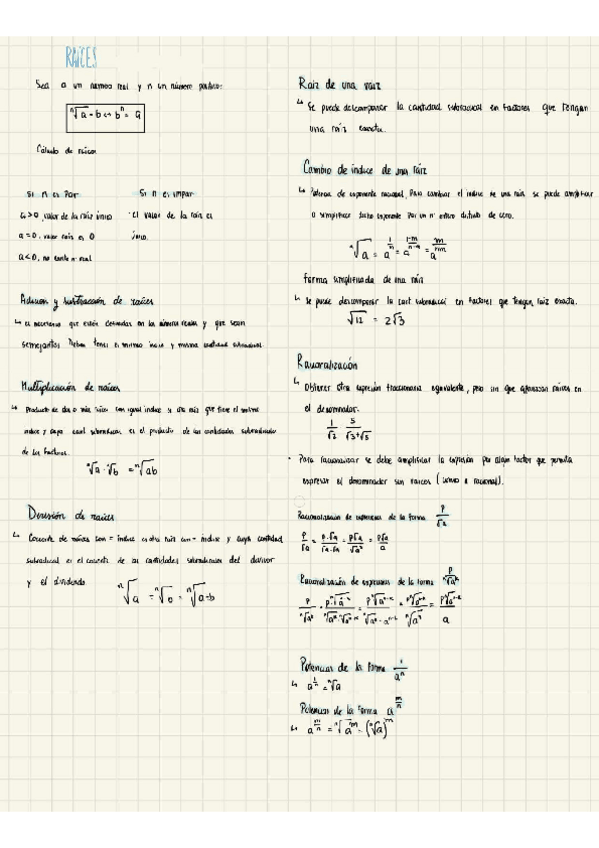 RAÍCES
Sea a un numero real y n un número positivo:
ⁿ√a = b ↔ bⁿ = a
Cálculo de raíces
Si n es par
a>0, valor de la raíz único
a=0, valor raíz es 0
a<0, no existe n° real
Si n es impar
·El valor de la raíz es
único.
Adicion y sustracción de raíces
↳ es necesario que estén definidas en los números reales y que sean
semejantes. Deben tener el mismo indice y misma cantidad subradical.
Multiplicación de raíces
↳ Producto de dos o más raíces con igual indice es otra raíz que tiene el mismo
indice y cuya cant subradical es el producto de las cantidades subradicales
de los factores.
ⁿ√a · ⁿ√b = ⁿ√ab
División de raíces
↳ Cociente de raíces con = indice es otra raíz con = indice y cuya cantidad
subradical es el cociente de las cantidades subradicales del divisor
y el dividendo.
ⁿ√a ÷ ⁿ√b = ⁿ√a÷b
Raíz de una raíz
↳ Se puede descomponer la cantidad subradical en factores que tengan
una raíz exacta.
Cambio de índice de una raíz
↳ Potencia de exponente racional. Para cambiar el indice de una raíz se puede amplificar
o simplificar dicho exponente por un n° entero distinto de cero.
forma simplificada de una raíz
↳ Se puede descomponer la cant subradical en factores que tengan raíz exacta.
√12 = 2√3
Racionalización
↳ Obtener otra expresión fraccionaria equivalente, pero sin que aparezcan raíces en
el denominador.
1/√2 5/√3+√5
• Para racionalizar se debe amplificar la expresión por algún factor que permita
expresar el denominador sin raíces (entero o racional).
Racionalización de expresiones de la forma p/√a
p/√a = p·√a/√a·√a = p√a/√a² = p√a/a
Racionalización de expresiones de la forma
Potencias de la forma
↳ a^(1/n) = ⁿ√a
Potencias de la forma a^(m/n)
↳ a^(m/n) = ⁿ√a^m = (ⁿ√a)^m